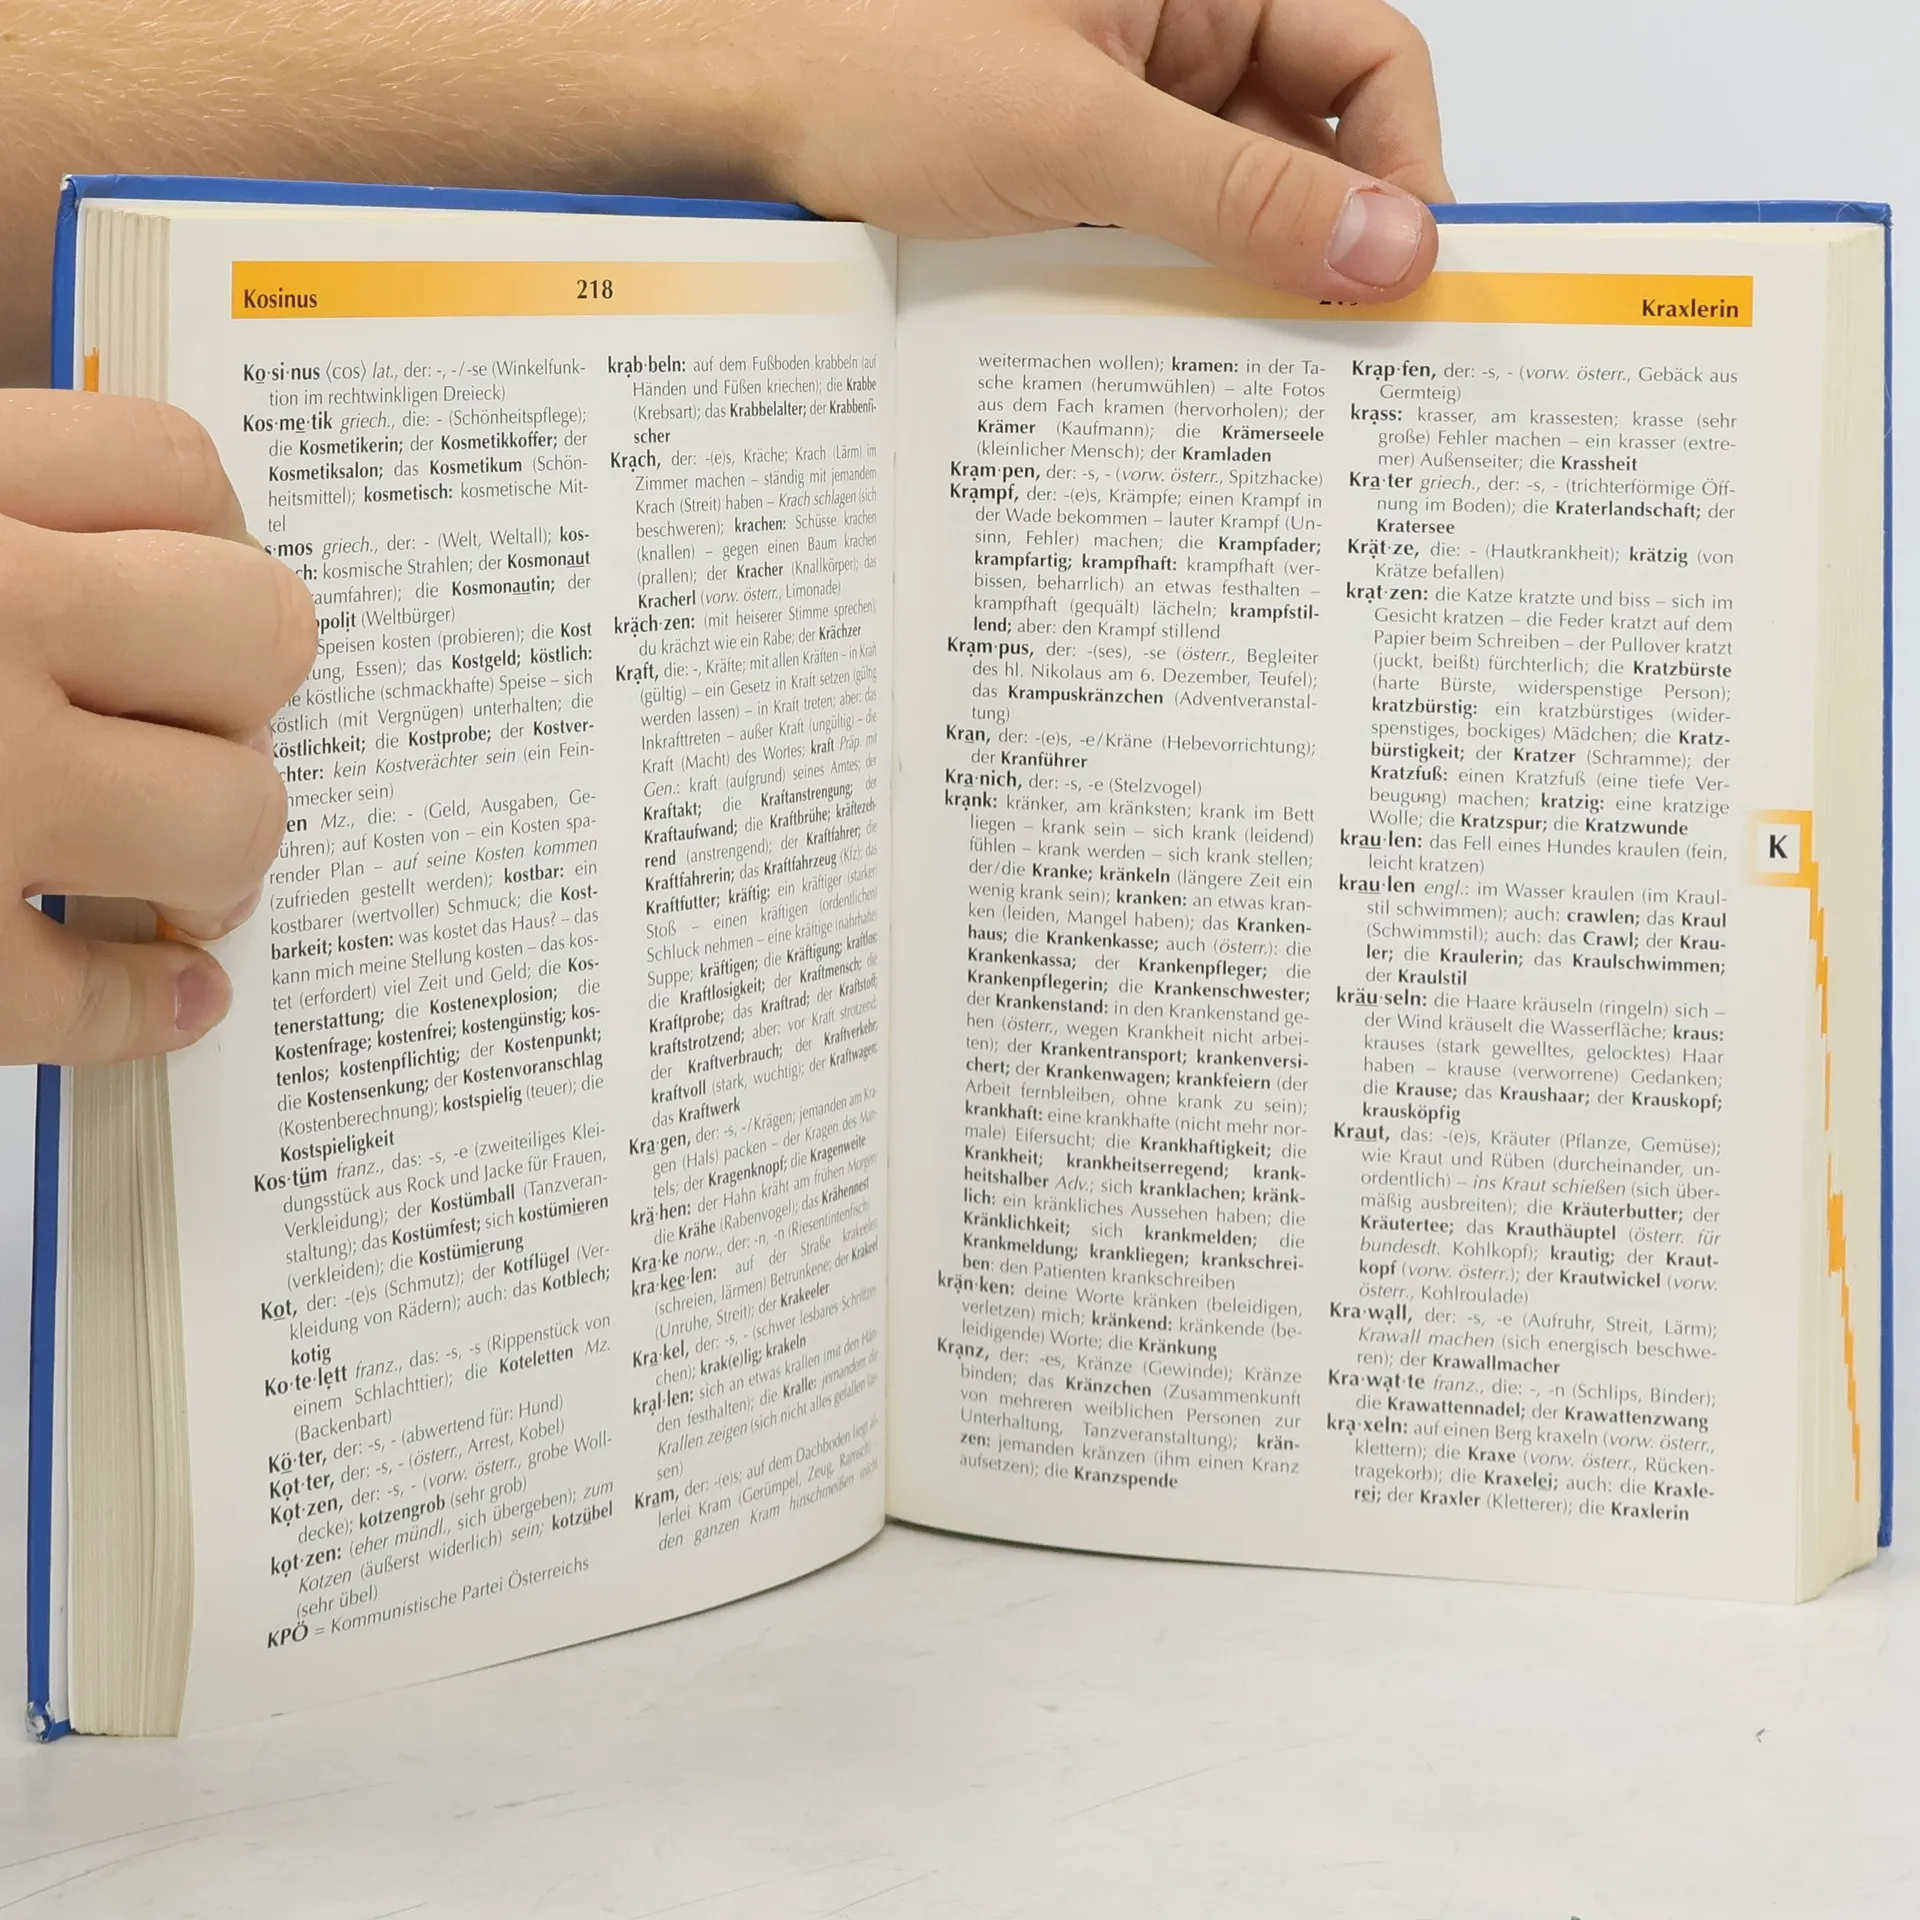 Kosinus
218
Ko·si·nus ⟨cos⟩ lat., der: -, -/-se (Winkelfunk-
tion im rechtwinkligen Dreieck)
Kos·me·tik griech., die: - (Schönheitspflege);
die Kosmetikerin; der Kosmetikkoffer; der
Kosmetiksalon; das Kosmetikum (Schön-
heitsmittel); kosmetisch: kosmetische Mit-
tel
s·mos griech., der: - (Welt, Weltall); kos-
ch: kosmische Strahlen; der Kosmonaut
aumfahrer); die Kosmonautin; der
opolit (Weltbürger)
Speisen kosten (probieren); die Kost
rung, Essen); das Kostgeld; köstlich:
ne köstliche (schmackhafte) Speise – sich
köstlich (mit Vergnügen) unterhalten; die
Köstlichkeit; die Kostprobe; der Kostver-
chter: kein Kostverächter sein (ein Fein-
hmecker sein)
en Mz., die: - (Geld, Ausgaben, Ge-
ühren); auf Kosten von – ein Kosten spa-
render Plan – auf seine Kosten kommen
(zufrieden gestellt werden); kostbar: ein
kostbarer (wertvoller) Schmuck; die Kost-
barkeit; kosten: was kostet das Haus? – das
kann mich meine Stellung kosten – das kos-
tet (erfordert) viel Zeit und Geld; die Kos-
tenerstattung; die Kostenexplosion; die
Kostenfrage; kostenfrei; kostengünstig; kos-
tenlos; kostenpflichtig; der Kostenpunkt;
die Kostensenkung; der Kostenvoranschlag
(Kostenberechnung); kostspielig (teuer); die
Kostspieligkeit
Kos·tüm franz., das: -s, -e (zweiteiliges Klei-
dungsstück aus Rock und Jacke für Frauen,
Verkleidung); der Kostümball (Tanzveran-
staltung); das Kostümfest; sich kostümieren
(verkleiden); die Kostümierung
Kot, der: -(e)s (Schmutz); der Kotflügel (Ver-
kleidung von Rädern); auch: das Kotblech;
kotig
Ko·te·lett franz., das: -s, -s (Rippenstück von
einem Schlachttier); die Koteletten Mz.
(Backenbart)
Kö·ter, der: -s, - (abwertend für: Hund)
Kot·ter, der: -s, - (österr., Arrest, Kobel)
Kot·zen, der: -s, - (vorw. österr., grobe Woll-
decke); kotzengrob (sehr grob)
kot·zen: (eher mündl., sich übergeben); zum
Kotzen (äußerst widerlich) sein; kotzübel
(sehr übel)
KPÖ = Kommunistische Partei Österreichs
krab·beln: auf dem Fußboden krabbeln (auf
Händen und Füßen kriechen); die Krabbe
(Krebsart); das Krabbelalter; der Krabbenfi-
scher
Krach, der: -(e)s, Kräche; Krach (Lärm) im
Zimmer machen – ständig mit jemandem
Krach (Streit) haben – Krach schlagen (sich
beschweren); krachen: Schüsse krachen
(knallen) – gegen einen Baum krachen
(prallen); der Kracher (Knallkörper); das
Kracherl (vorw. österr., Limonade)
kräch·zen: (mit heiserer Stimme sprechen);
du krächzt wie ein Rabe; der Krächzer
Kraft, die: -, Kräfte; mit allen Kräften – in Kraft
(gültig) – ein Gesetz in Kraft setzen (gültig
werden lassen) – in Kraft treten; aber: das
Inkrafttreten – außer Kraft (ungültig) – die
Kraft (Macht) des Wortes; kraft Präp. mit
Gen.: kraft (aufgrund) seines Amtes; der
Kraftakt; die Kraftanstrengung; der
Kraftaufwand; die Kraftbrühe; kräftezeh-
rend (anstrengend); der Kraftfahrer; die
Kraftfahrerin; das Kraftfahrzeug (Kfz); das
Kraftfutter; kräftig: ein kräftiger (starker)
Stoß – einen kräftigen (ordentlichen)
Schluck nehmen – eine kräftige (nahrhafte)
Suppe; kräftigen; die Kräftigung; kraftlos;
die Kraftlosigkeit; der Kraftmensch; die
Kraftprobe; das Kraftrad; der Kraftstoff;
kraftstrotzend; aber: vor Kraft strotzend;
der Kraftverbrauch; der Kraftverkehr;
kraftvoll (stark, wuchtig); der Kraftwagen;
das Kraftwerk
Kra·gen, der: -s, -/Krägen; jemanden am Kra-
gen (Hals) packen – der Kragen des Man-
tels; der Kragenknopf; die Kragenweite
krä·hen: der Hahn kräht am frühen Morgen;
die Krähe (Rabenvogel); das Krähennest
Kra·ke norw., der: -n, -n (Riesentintenfisch)
kra·kee·len: auf der Straße krakeelen
(schreien, lärmen) Betrunkene; der Krakeel
(Unruhe, Streit); der Krakeeler
Kra·kel, der: -s, - (schwer lesbares Schriftzei-
chen); krak(e)lig; krakeln
kral·len: sich an etwas krallen (mit den Hän-
den festhalten); die Kralle: jemandem die
Krallen zeigen (sich nicht alles gefallen las-
sen)
Kram, der: -(e)s; auf dem Dachboden liegt al-
lerlei Kram (Gerümpel, Zeug, Ramsch) –
den ganzen Kram hinschmeißen (nicht
Kraxlerin
weitermachen wollen); kramen: in der Ta-
sche kramen (herumwühlen) – alte Fotos
aus dem Fach kramen (hervorholen); der
Krämer (Kaufmann); die Krämerseele
(kleinlicher Mensch); der Kramladen
Kram·pen, der: -s, - (vorw. österr., Spitzhacke)
Krampf, der: -(e)s, Krämpfe; einen Krampf in
der Wade bekommen – lauter Krampf (Un-
sinn, Fehler) machen; die Krampfader;
krampfartig; krampfhaft: krampfhaft (ver-
bissen, beharrlich) an etwas festhalten –
krampfhaft (gequält) lächeln; krampfstil-
lend; aber: den Krampf stillend
Kram·pus, der: -(ses), -se (österr., Begleiter
des hl. Nikolaus am 6. Dezember, Teufel);
das Krampuskränzchen (Adventveranstal-
tung)
Kran, der: -(e)s, -e/Kräne (Hebevorrichtung);
der Kranführer
Kra·nich, der: -s, -e (Stelzvogel)
krank: kränker, am kränksten; krank im Bett
liegen – krank sein – sich krank (leidend)
fühlen – krank werden – sich krank stellen;
der/die Kranke; kränkeln (längere Zeit ein
wenig krank sein); kranken: an etwas kran-
ken (leiden, Mangel haben); das Kranken-
haus; die Krankenkasse; auch (österr.): die
Krankenkassa; der Krankenpfleger; die
Krankenpflegerin; die Krankenschwester;
der Krankenstand: in den Krankenstand ge-
hen (österr., wegen Krankheit nicht arbei-
ten); der Krankentransport; krankenversi-
chert; der Krankenwagen; krankfeiern (der
Arbeit fernbleiben, ohne krank zu sein);
krankhaft: eine krankhafte (nicht mehr nor-
male) Eifersucht; die Krankhaftigkeit; die
Krankheit; krankheitserregend; krank-
heitshalber Adv.; sich kranklachen; kränk-
lich: ein kränkliches Aussehen haben; die
Kränklichkeit; sich krankmelden; die
Krankmeldung; krankliegen; krankschrei-
ben: den Patienten krankschreiben
krän·ken: deine Worte kränken (beleidigen,
verletzen) mich; kränkend: kränkende (be-
leidigende) Worte; die Kränkung
Kranz, der: -es, Kränze (Gewinde); Kränze
binden; das Kränzchen (Zusammenkunft
von mehreren weiblichen Personen zur
Unterhaltung, Tanzveranstaltung); krän-
zen: jemanden kränzen (ihm einen Kranz
aufsetzen); die Kranzspende
Krap·fen, der: -s, - (vorw. österr., Gebäck aus
Germteig)
krass: krasser, am krassesten; krasse (sehr
große) Fehler machen – ein krasser (extre-
mer) Außenseiter; die Krassheit
Kra·ter griech., der: -s, - (trichterförmige Öff-
nung im Boden); die Kraterlandschaft; der
Kratersee
Krät·ze, die: - (Hautkrankheit); krätzig (von
Krätze befallen)
krat·zen: die Katze kratzte und biss – sich im
Gesicht kratzen – die Feder kratzt auf dem
Papier beim Schreiben – der Pullover kratzt
(juckt, beißt) fürchterlich; die Kratzbürste
(harte Bürste, widerspenstige Person);
kratzbürstig: ein kratzbürstiges (wider-
spenstiges, bockiges) Mädchen; die Kratz-
bürstigkeit; der Kratzer (Schramme); der
Kratzfuß: einen Kratzfuß (eine tiefe Ver-
beugung) machen; kratzig: eine kratzige
Wolle; die Kratzspur; die Kratzwunde
krau·len: das Fell eines Hundes kraulen (fein,
leicht kratzen)
krau·len engl.: im Wasser kraulen (im Kraul-
stil schwimmen); auch: crawlen; das Kraul
(Schwimmstil); auch: das Crawl; der Krau-
ler; die Kraulerin; das Kraulschwimmen;
der Kraulstil
kräu·seln: die Haare kräuseln (ringeln) sich –
der Wind kräuselt die Wasserfläche; kraus:
krauses (stark gewelltes, gelocktes) Haar
haben – krause (verworrene) Gedanken;
die Krause; das Kraushaar; der Krauskopf;
krausköpfig
Kraut, das: -(e)s, Kräuter (Pflanze, Gemüse);
wie Kraut und Rüben (durcheinander, un-
ordentlich) – ins Kraut schießen (sich über-
mäßig ausbreiten); die Kräuterbutter; der
Kräutertee; das Krauthäuptel (österr. für
bundesdt. Kohlkopf); krautig; der Kraut-
kopf (vorw. österr.); der Krautwickel (vorw.
österr., Kohlroulade)
Kra·wall, der: -s, -e (Aufruhr, Streit, Lärm);
Krawall machen (sich energisch beschwe-
ren); der Krawallmacher
Kra·wat·te franz., die: -, -n (Schlips, Binder);
die Krawattennadel; der Krawattenzwang
kra·xeln: auf einen Berg kraxeln (vorw. österr.,
klettern); die Kraxe (vorw. österr., Rücken-
tragekorb); die Kraxelei; auch: die Kraxle-
rei; der Kraxler (Kletterer); die Kraxlerin
K